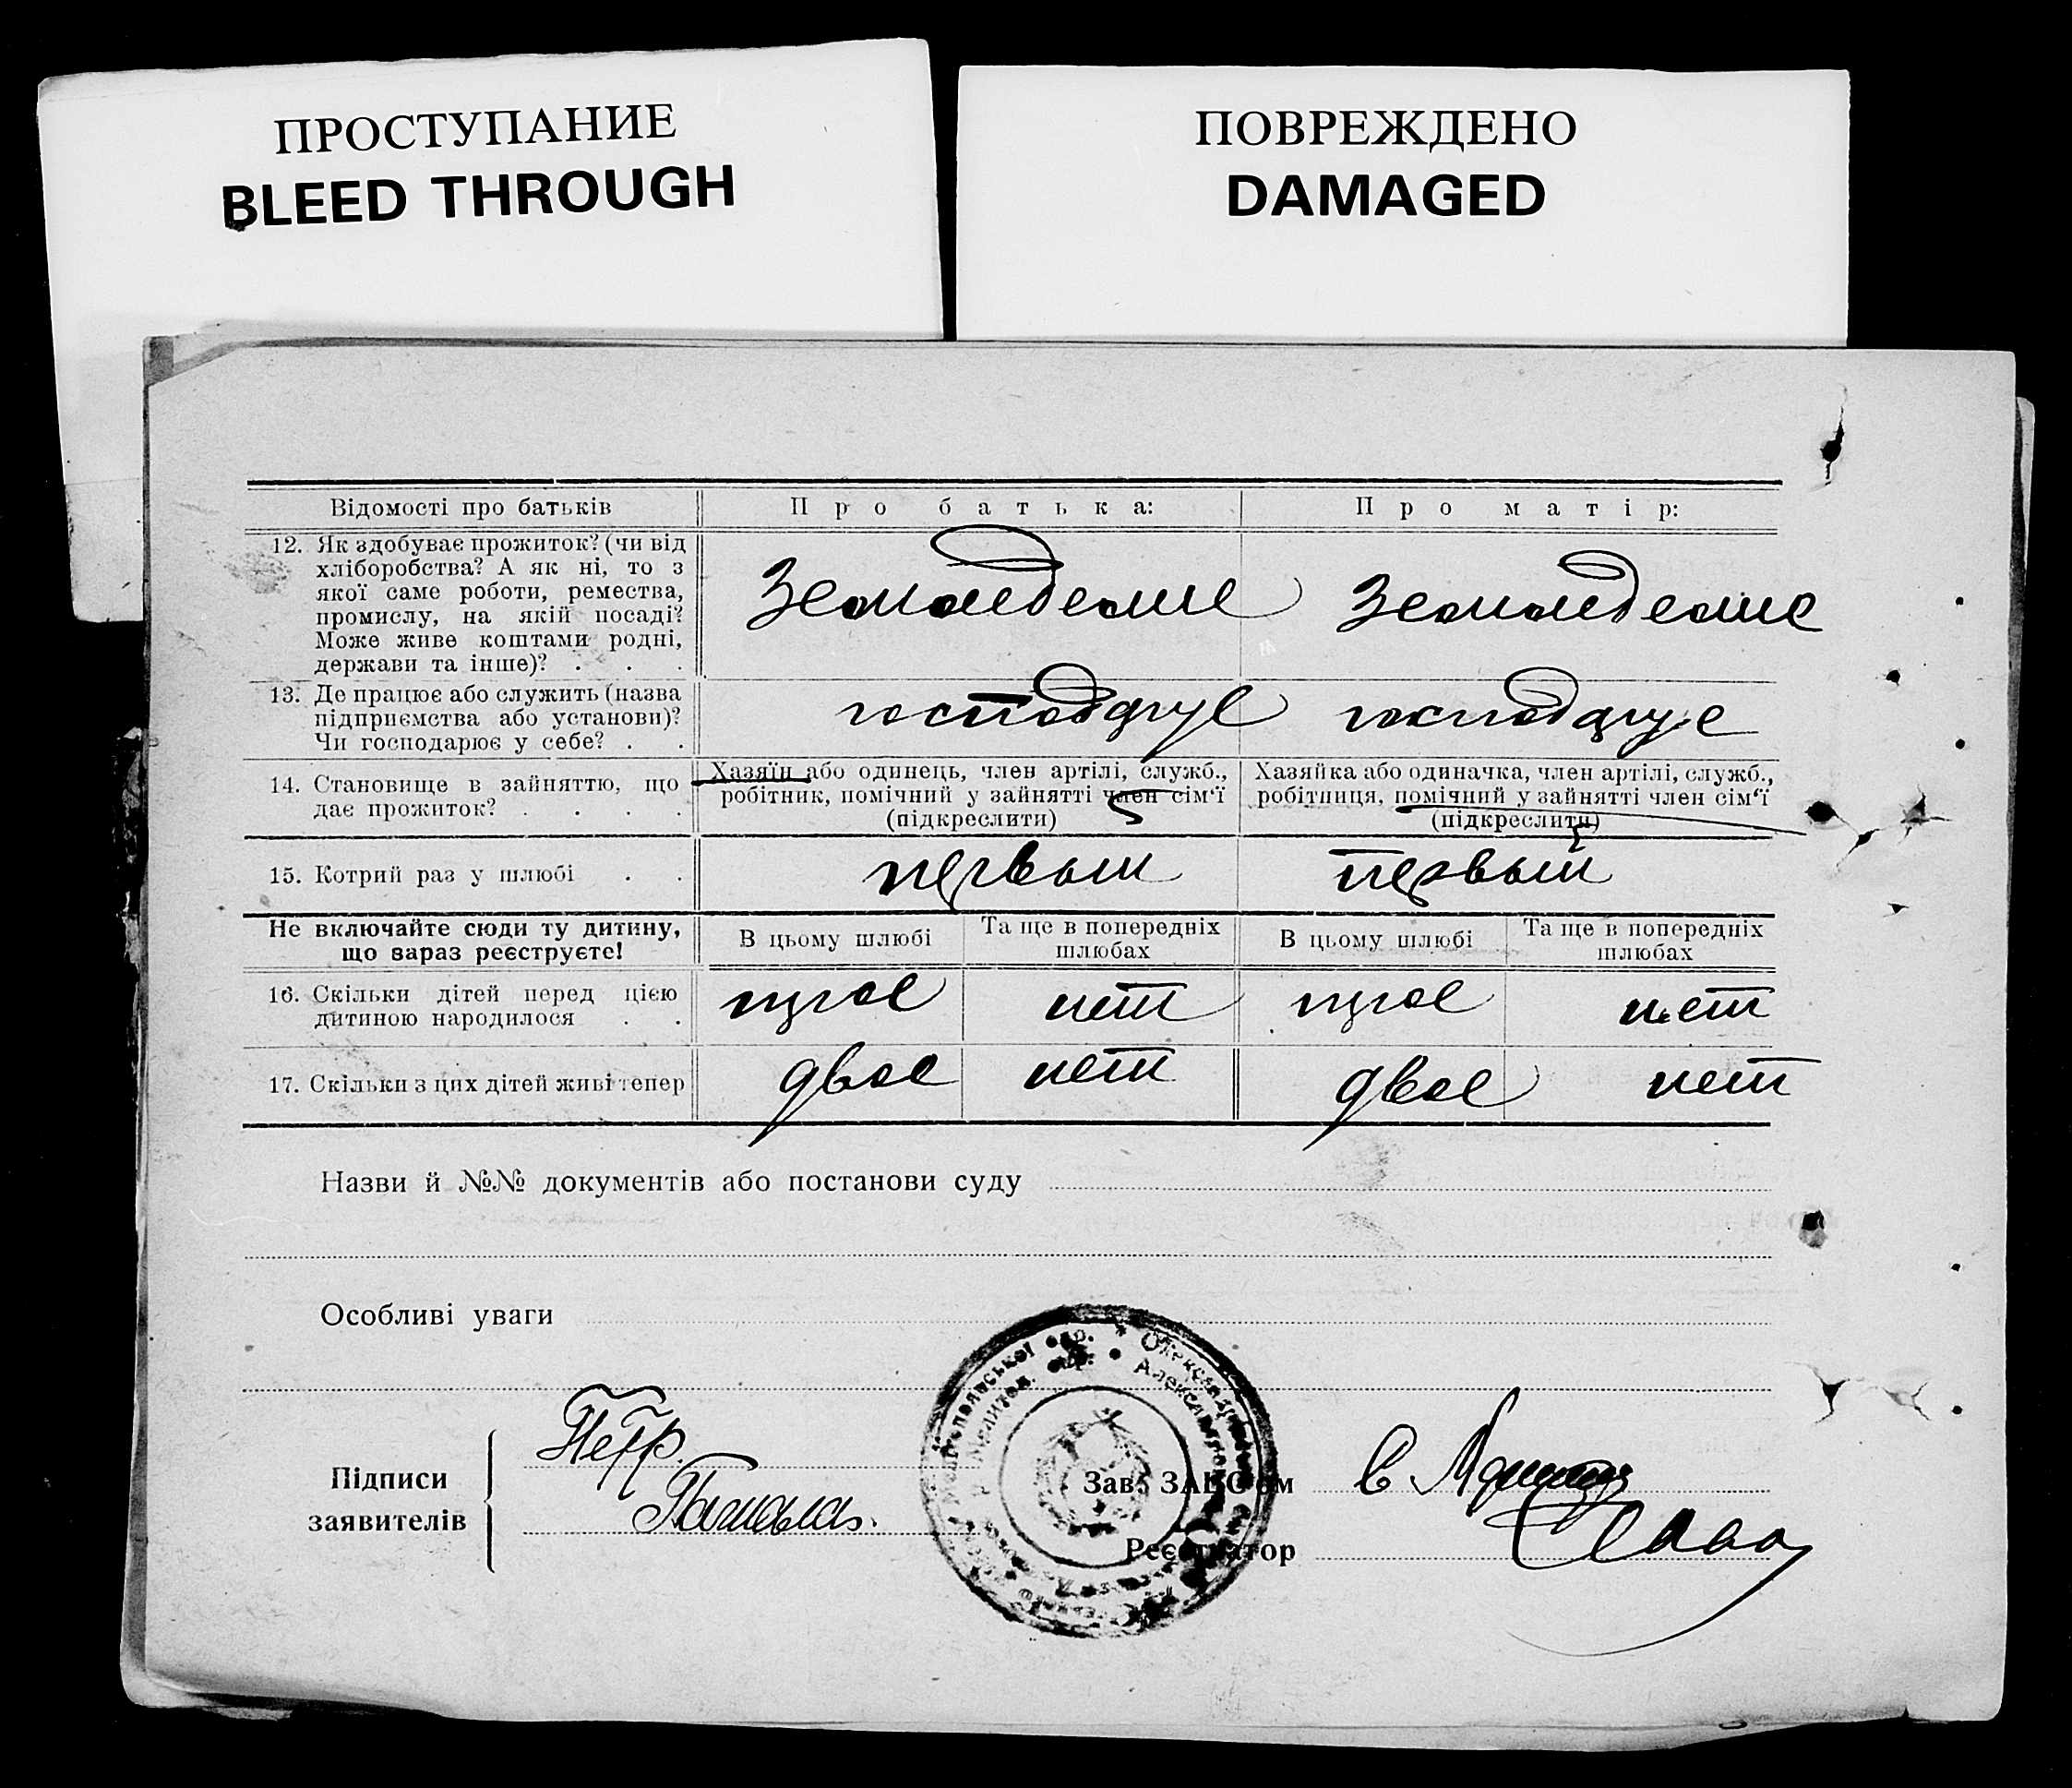 ПРОСТУПАНИЕ
BLEED THROUGH
ПОВРЕЖДЕНО
DAMAGED
Відомості про батьків
Про батька:
Про матір:
12. Як здобуває прожиток? (чи від
хліборобства? А як ні, то з
якої саме роботи, ремества,
промислу, на якій посаді?
Може живе коштами родні,
держави та інше)? . . .
Земледелие
Земледелие
13. Де працює або служить (назва
підприємства або установи)?
Чи господарює у себе? . .
14. Становище в зайняттю, що
дає прожиток? . . . .
Хазяїн або одинець, член артілі, служб.,
робітник, помічний у зайнятті член сім‘ї
(підкреслити)
Хазяйка або одиначка, член артілі, служб.,
робітниця, помічний у зайнятті член сім‘ї
(підкреслити)
15. Котрий раз у шлюбі . .
первый
первый
Не включайте сюди ту дитину,
що вараз реєструєте!
В цьому шлюбі
Та ще в попередніх
шлюбах
В цьому шлюбі
Та ще в попередніх
шлюбах
16. Скільки дітей перед цією
дитиною народилося . .
нет
нет
17. Скільки з цих дітей живі тепер
двое
нет
двое
нет
Назви й №№ документів або постанови суду
Особливі уваги
Підписи
заявителів
Петр.
Зав. ЗАГС'ом
Реєстратор